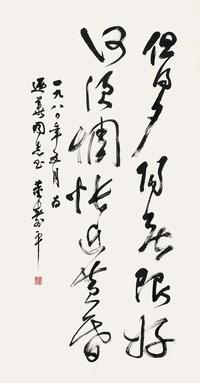 但得夕阳无限好
何须惆怅近黄昏
一九八〇年五月为
同志书 董寿平